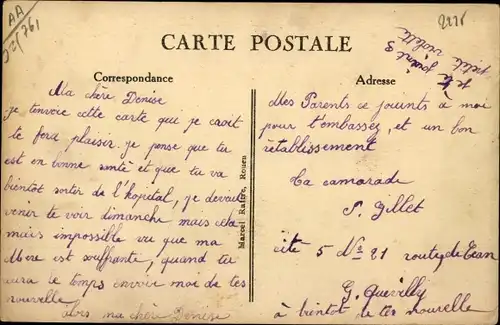 AA
52/761
2225
CARTE POSTALE
Correspondance
Adresse
Ma chère Denise
je t'envoie cette carte que je crait
te fera plaisir. je pense que tu
est en bonne santé et que tu va
bientôt sortir de l'hopital, je devait
venir te voir dimanche mais cela
mais impossible vu que ma
Mère est souffrante, quand tu
aura le temps envoir moi de tes
nouvelle
ma chère Denise
Marcel Rafre, Rouen
Mes Parents ce jouints à moi
pour t'embassez, et un bon
rétablissement
ta camarade
P. Gillet
cite 5 No 21 route de Caen
G. Quevilly
à bientôt de tes nouvelle
violette